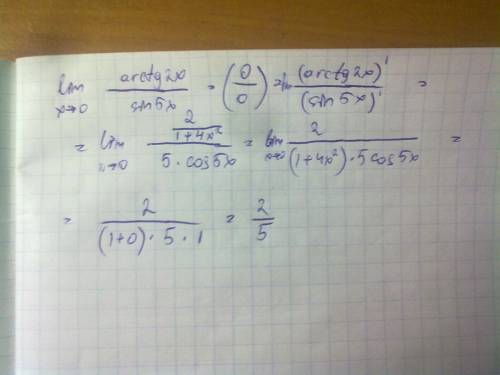 lim x→0 arctg2x / sin5x = (0/0) = lim (arctg2x)' / (sin5x)' =
= lim x→0 (2 / 1+4x²) / 5·cos5x = lim x→0 2 / (1+4x²)·5cos5x =
= 2 / (1+0)·5·1 = 2/5